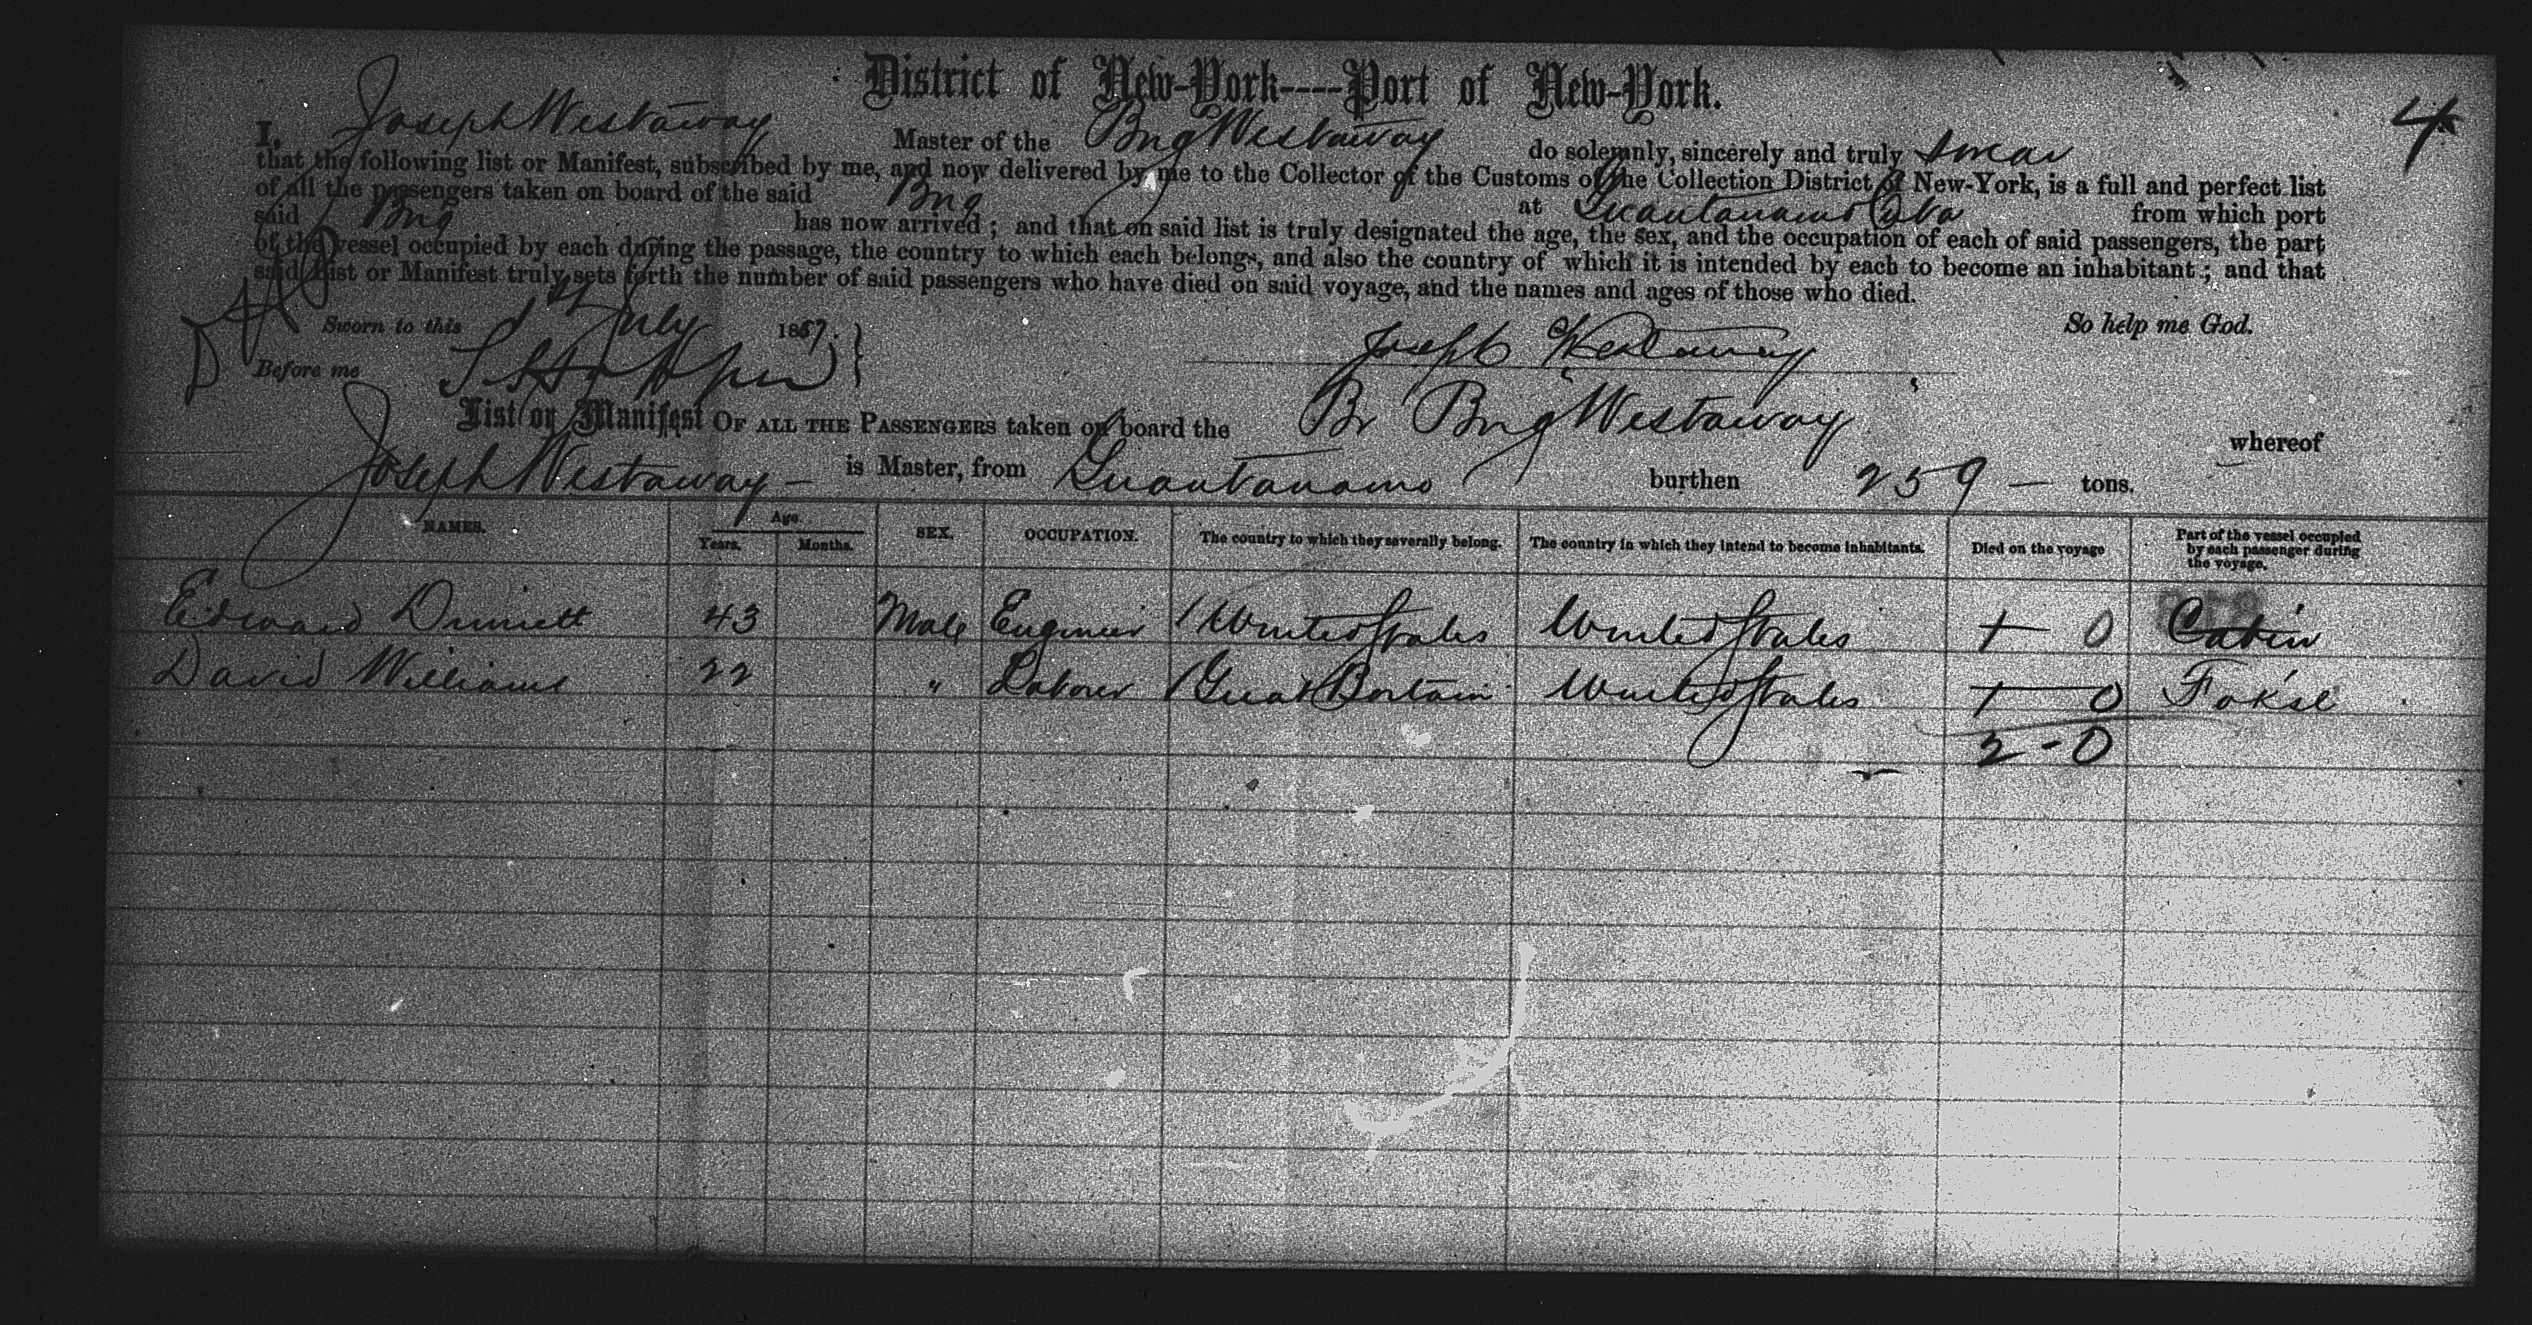 District of New-York----Port of New-York.
4
I, Joseph Westaway Master of the Brig Westaway do solemnly, sincerely and truly swear
that the following list or Manifest, subscribed by me, and now delivered by me to the Collector of the Customs of the Collection District of New-York, is a full and perfect list
of all the passengers taken on board of the said Brig at Guantanamo Cuba from which port
said Brig has now arrived; and that on said list is truly designated the age, the sex, and the occupation of each of said passengers, the part
of the vessel occupied by each during the passage, the country to which each belongs, and also the country of which it is intended by each to become an inhabitant; and that
said List or Manifest truly sets forth the number of said passengers who have died on said voyage, and the names and ages of those who died.
Sworn to this 1st July 1867. So help me God.
Before me Joseph Westaway
List or Manifest OF ALL THE PASSENGERS taken on board the Br Brig Westaway whereof
Joseph Westaway - is Master, from Guantanamo burthen 259 - tons.
NAMES. Age. Years. Months. SEX. OCCUPATION. The country to which they severally belong. The country in which they intend to become inhabitants. Died on the voyage Part of the vessel occupied by each passenger during the voyage.
Edward 43 Male Engineer United States United States 0 Cabin
David Williams 22 " Labourer Great Britain United States 0 Fok'sl
2-0